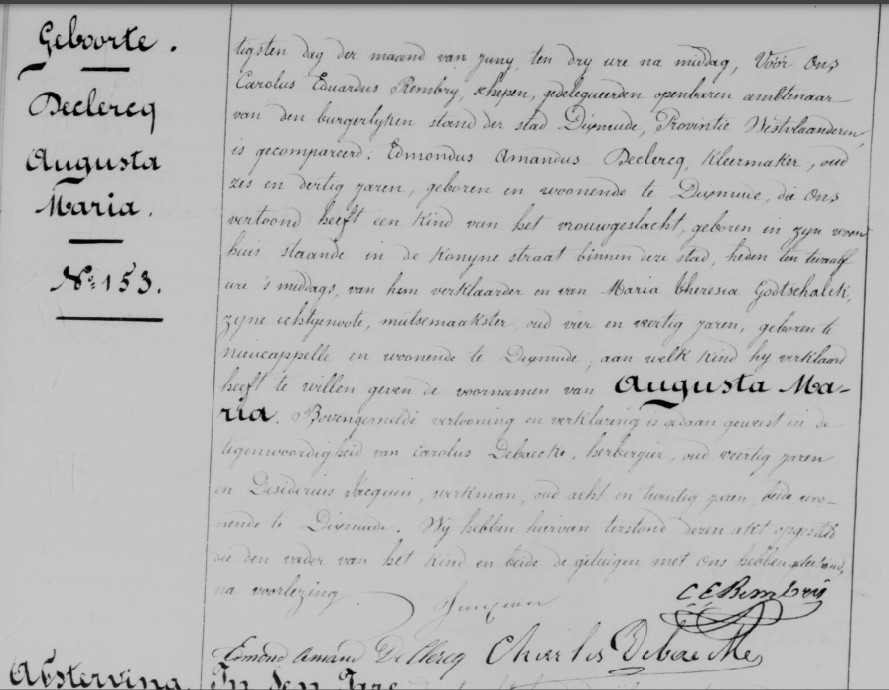 Geboorte.
Declercq
Augusta
Maria.
No. 153.
tigsten dag der maand van Juny, ten dry ure na middag, Voor Ons
Carolus Eduardus Rembry, schepen, gedelegueerden openbaren ambtenaar
van den burgerlyken stand der stad Dixmude, Provintie Westvlaanderen,
is gecompareerd: Edmondus Amandus Declercq, Kleermaker, oud
zes en dertig jaren, geboren en woonende te Dixmude, die Ons
vertoond heeft een Kind van het vrouwgeslacht, geboren in zyn woon
huis staande in de Konyne straat binnen deze stad, heden ten twaalf
ure 's middags, van hem verklaarder en van Maria Theresia Godtschalck,
zyne echtgenoote, mutsemaakster, oud vier en veertig jaren, geboren te
Nieucappelle en woonende te Dixmude; aan welk Kind hy verklaard
heeft te willen geven de voornamen van Augusta Ma-
ria. Bovengemelde vertooning en verklaring is gedaan geweest in de
tegenwoordigheid van Carolus Debaecke, herbergier, oud veertig jaren
en Desiderius Jacquin, werkman, oud acht en twintig jaren, beide woo-
nende te Dixmude. Wy hebben hiervan terstond dezen akt opgesteld
die den vader van het Kind en beide de getuigen met Ons hebben geteekend,
na voorlezing.
C E Rembry
Edmond Amand De Clercq Charles Debaecke
Afsterving. In den Jare